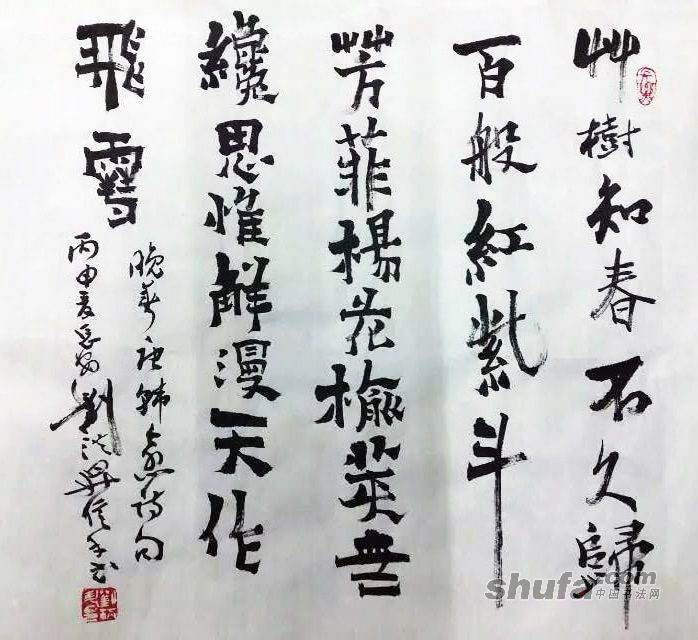 艸樹知春不久歸
百般紅紫斗
芳菲楊花榆莢無
纔思惟解漫天作
飛雪
晚春唐韩愈诗句
丙申夏劉洪信手书
shufa.com
中国书法网